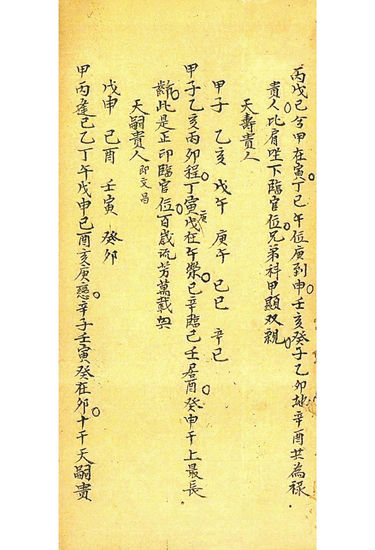 丙戊巳兮甲在寅丁己午位庚到申壬亥癸子乙卯地辛酉共為祿
貴人比肩坐下臨官位兄弟科甲顯双親
天壽貴人
甲子 乙亥 戊午 庚午 己巳 辛巳
甲子乙亥丙卯程丁寅戊庚在午榮己辛臨巳壬居酉癸申干上最長
此是正印臨官位百歲流芳萬載
天嗣貴人 即文昌
戊申 己酉 壬寅 癸卯
甲丙逢巳乙丁午戊申己酉亥庚辛子壬寅癸在卯十干天嗣貴